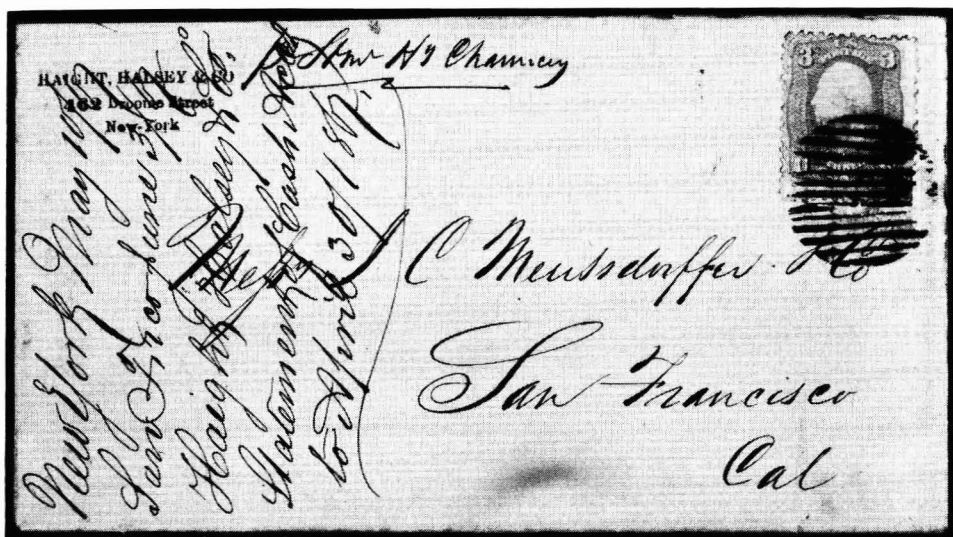 HAIGHT, HALSEY & CO
462 Broome Street
New-York
Stmr Hy Chauncey
3 3
C Meussdorffer & Co
San Francisco
Cal
New York May
San Fr'co June
Haight Halsey & Co,
Statement Cash
to April 30/67.